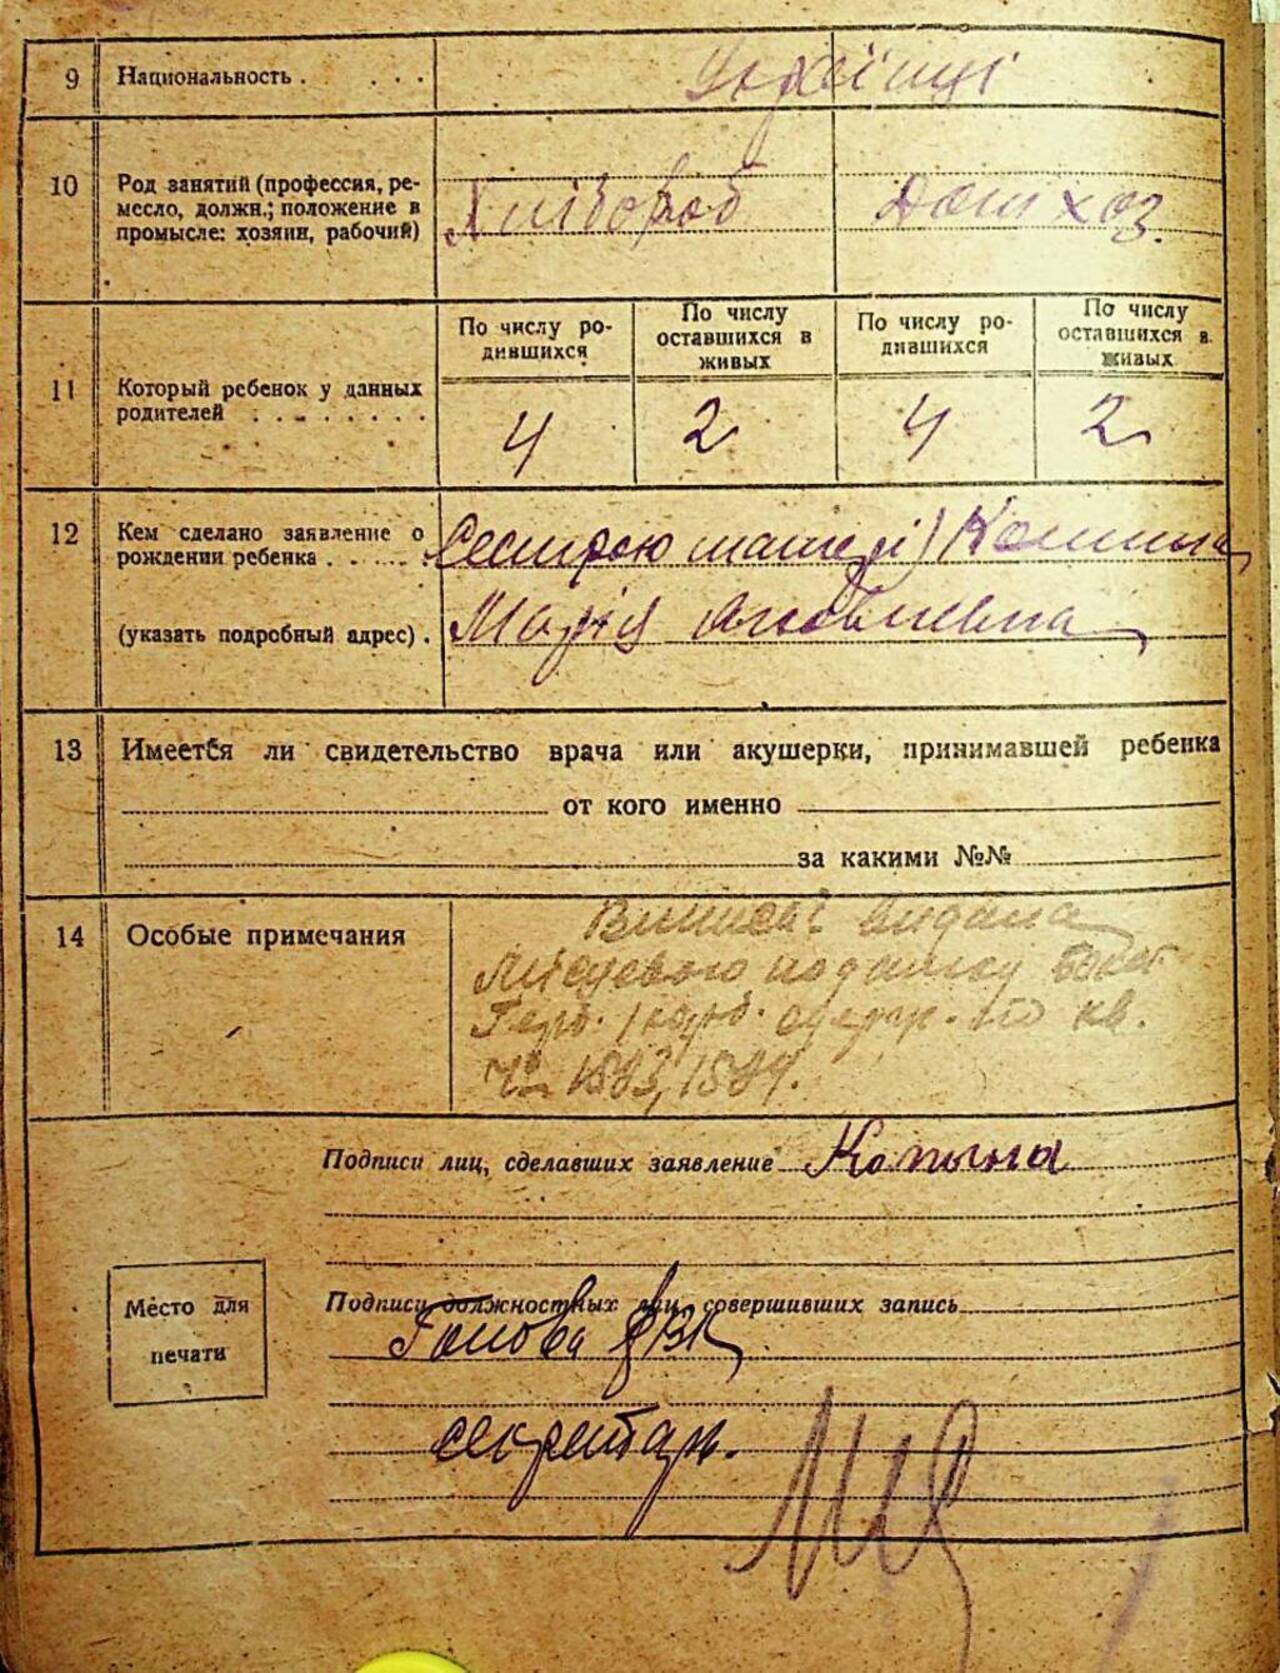 9 Национальность . . . . Українці
10 Род занятий (профессия, ре-
месло, должн.; положение в
промысле: хозяин, рабочий)
Хлібороб Домхоз.
По числу ро-
дившихся
По числу
оставшихся в
живых
По числу ро-
дившихся
По числу
оставшихся в
живых
11 Который ребенок у данных
родителей . . . . . . . .
4 2 4 2
12 Кем сделано заявление о
рождении ребенка . . . . . .
(указать подробный адрес) .
Сестрою матері)
Марія Яковлевна
13 Имеется ли свидетельство врача или акушерки, принимавшей ребенка
от кого именно
за какими №№
14 Особые примечания
видана
Місцевого податку
Герб. збор.
кв.
Подписи лиц, сделавших заявление
Подписи должностных лиц, совершивших запись
Место для
печати
Голова
секретар.